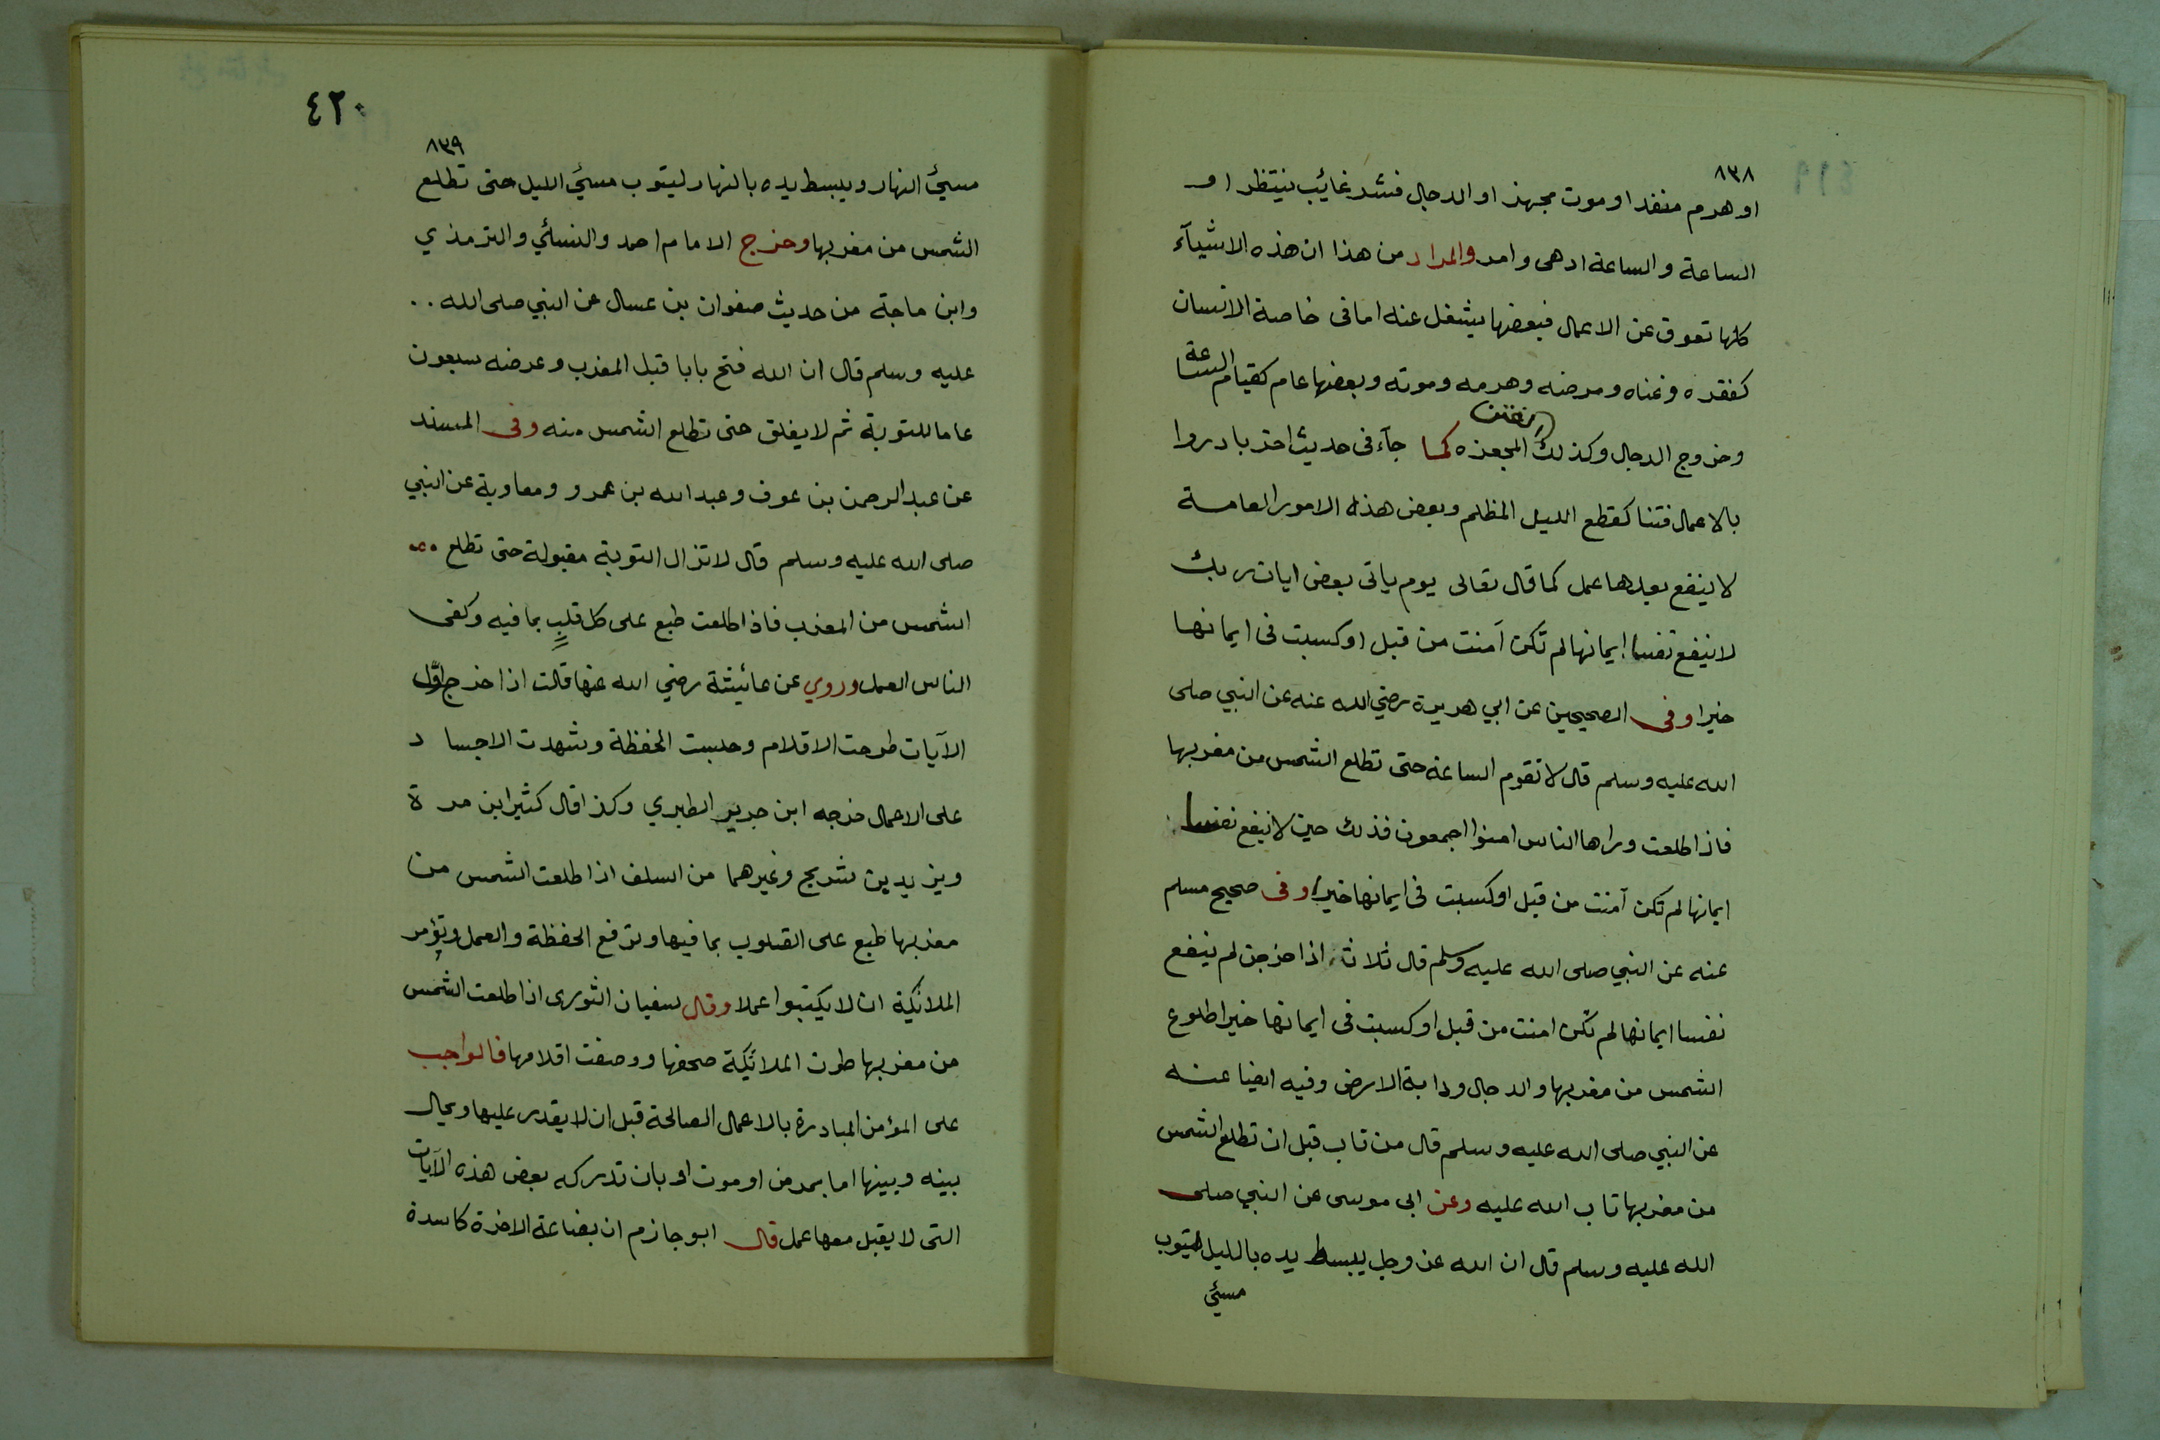 ٨٣٨
او هرم مفند او موت مجهز او الدجال فشر غايب ينتظر او
الساعة والساعة ادهى وامر والمراد من هذا ان هذه الاشيآء
كلها تعوق عن الاعمال فبعضها يشغل عنه اما فى خاصة الانسان
كفقره وغناه ومرضه وهرمه وموته وبعضها عام كقيام الساعة
وخروج الدجال وكذلك الفتن المجعزه كما جآء فى حديث اخر بادروا
بالاعمال فتنا كقطع الليل المظلم وبعض هذه الامور العامة
لا ينفع بعدها عمل كما قال تعالى يوم ياتى بعض ايات ربك
لا ينفع نفسا ايمانها لم تكن آمنت من قبل او كسبت فى ايمانها
خيرا وفى الصحيحين عن ابي هريرة رضي الله عنه عن النبي صلى
الله عليه وسلم قال لا تقوم الساعة حتى تطلع الشمس من مغربها
فاذا طلعت وراها الناس امنوا اجمعون فذلك حين لا ينفع نفسا
ايمانها لم تكن آمنت من قبل او كسبت فى ايمانها خيرا وفى صحيح مسلم
عنه عن النبي صلى الله عليه وسلم قال ثلاث اذا خرجن لم ينفع
نفسا ايمانها لم تكن امنت من قبل او كسبت فى ايمانها خيرا طلوع
الشمس من مغربها والدجال ودابة الارض وفيه ايضا عنه
عن النبي صلى الله عليه وسلم قال من تاب قبل ان تطلع الشمس
من مغربها تاب الله عليه وعن ابى موسى عن النبي صلى
الله عليه وسلم قال ان الله عز وجل يبسط يده بالليل ليتوب
مسيئ
٤٢٠
٨٣٩
مسيئ النهار ويبسط يده بالنهار ليتوب مسيئ الليل حتى تطلع
الشمس من مغربها وخرج الامام احمد والنسائي والترمذي
وابن ماجة من حديث صفوان بن عسال عن النبي صلى الله ..
عليه وسلم قال ان الله فتح بابا قبل المغرب وعرضه سبعون
عاما للتوبة ثم لا يغلق حتى تطلع الشمس منه وفى المسند
عن عبد الرحمن بن عوف وعبد الله بن عمرو ومعاوية عن النبي
صلى الله عليه وسلم قال لا تزال التوبة مقبولة حتى تطلع
الشمس من المغرب فاذا طلعت طبع على كل قلبٍ بما فيه وكفى
الناس العمل وروي عن عائيشة رضي الله عنها قالت اذا خرج اوّل
الآيات طرحت الاقلام وحبست الحفظة وشهدت الاجساد
على الاعمال خرجه ابن جرير الطبري وكذا قال كثير ابن مرة
ويزيد بن شريح وغيرهما من السلف اذا طلعت الشمس من
مغربها طبع على القلوب بما فيها وترفع الحفظة والعمل وتؤمر
الملائكية ان لا يكتبوا عملا وقال سفيان الثورى اذا طلعت الشمس
من مغربها طوت الملائكية صحفها ووضعت اقلامها فالواجب
على المؤمن المبادرة بالاعمال الصالحة قبل ان لا يقدر عليها ويحال
بينه وبينها اما بمرض او موت او بان تدركه بعض هذه الآيات
التى لا يقبل معها عمل قال ابو حازم ان بضاعة الاخرة كاسدة